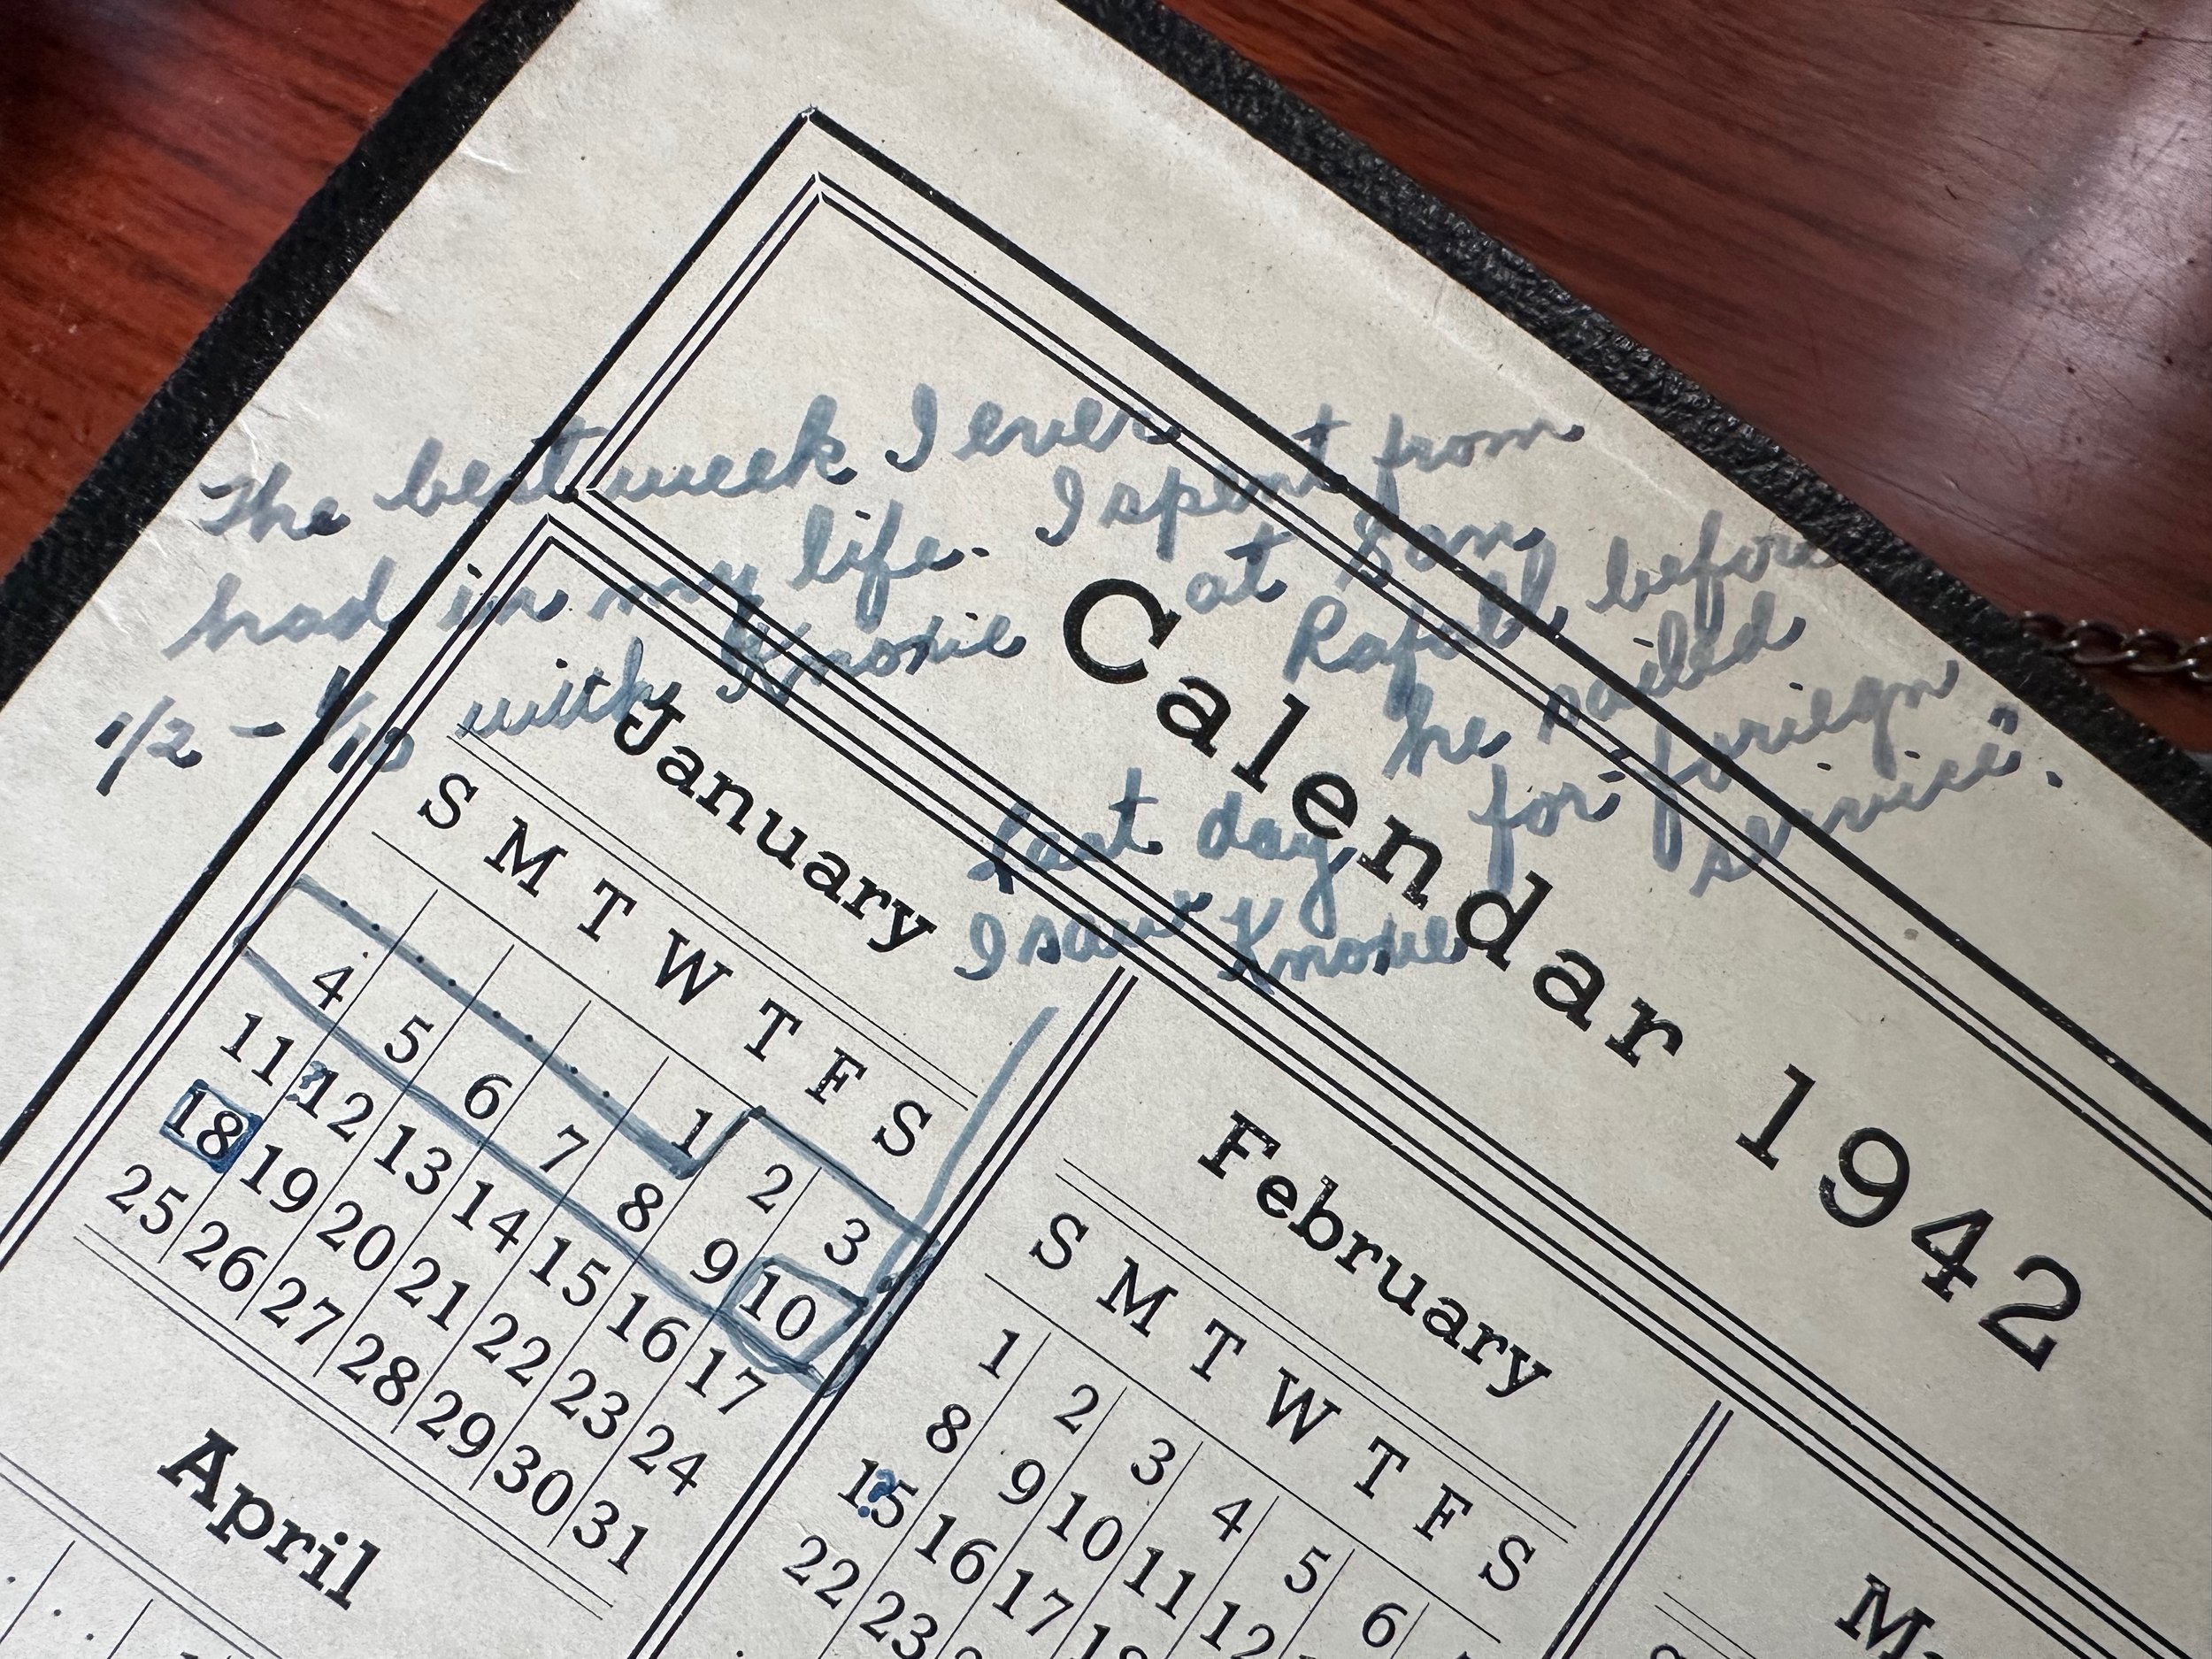 The best week I ever
had in my life. I spent from
1/2 - 1/10 with Knoxie at San
Rafell before
he sailed
for foriegn
service.
Last day
I saw Knoxie
Calendar 1942
January
S M T W T F S
1 2 3
4 5 6 7 8 9 10
11 ? 12 13 14 15 16 17
18 19 20 21 22 23 24
25 26 27 28 29 30 31
February
S M T W T F S
1 2 3 4 5 6
8 9 10 11 12
15 ? 16 17 18
22 23
April